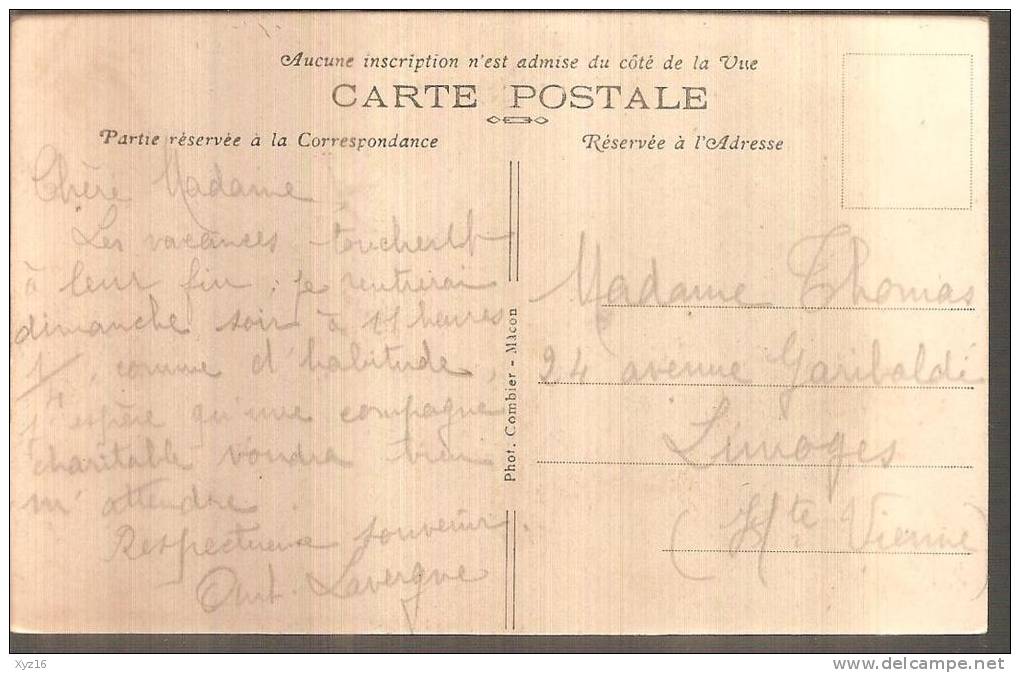 Aucune inscription n'est admise du côté de la Vue
CARTE POSTALE
Partie réservée à la Correspondance
Réservée à l'Adresse
Chère Madame,
Les vacances touchent
à leur fin ; je rentrerai
dimanche soir à 11 heures
1/4, comme d'habitude,
j'espère qu'une compagne
charitable voudra bien
m'attendre
Respectueux souvenir.
Ant. Lavergne
Phot. Combier - Mâcon
Madame Thomas
24 avenue Garibaldi
Limoges
(Hte Vienne)
Xyz16
www.delcampe.net